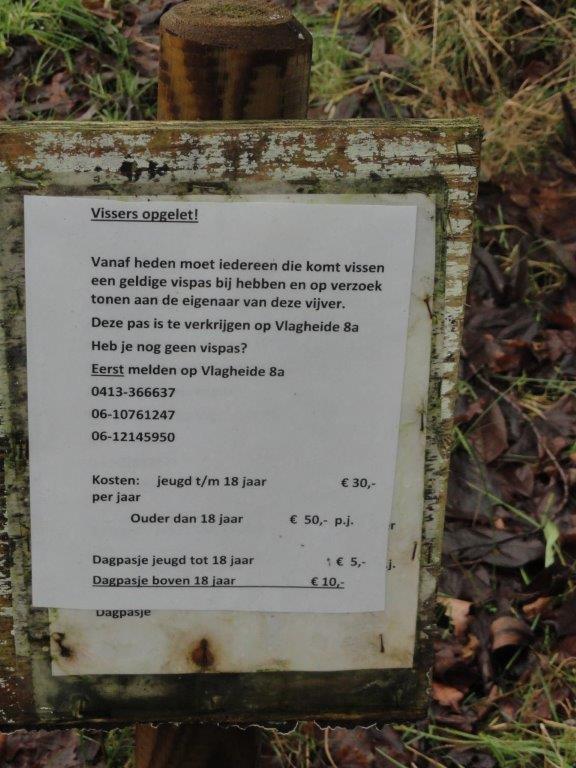 Vissers opgelet!
Vanaf heden moet iedereen die komt vissen
een geldige vispas bij hebben en op verzoek
tonen aan de eigenaar van deze vijver.
Deze pas is te verkrijgen op Vlagheide 8a
Heb je nog geen vispas?
Eerst melden op Vlagheide 8a
0413-366637
06-10761247
06-12145950
Kosten: jeugd t/m 18 jaar € 30,-
per jaar
Ouder dan 18 jaar € 50,- p.j.
Dagpasje jeugd tot 18 jaar € 5,-
Dagpasje boven 18 jaar € 10,-
Dagpasje